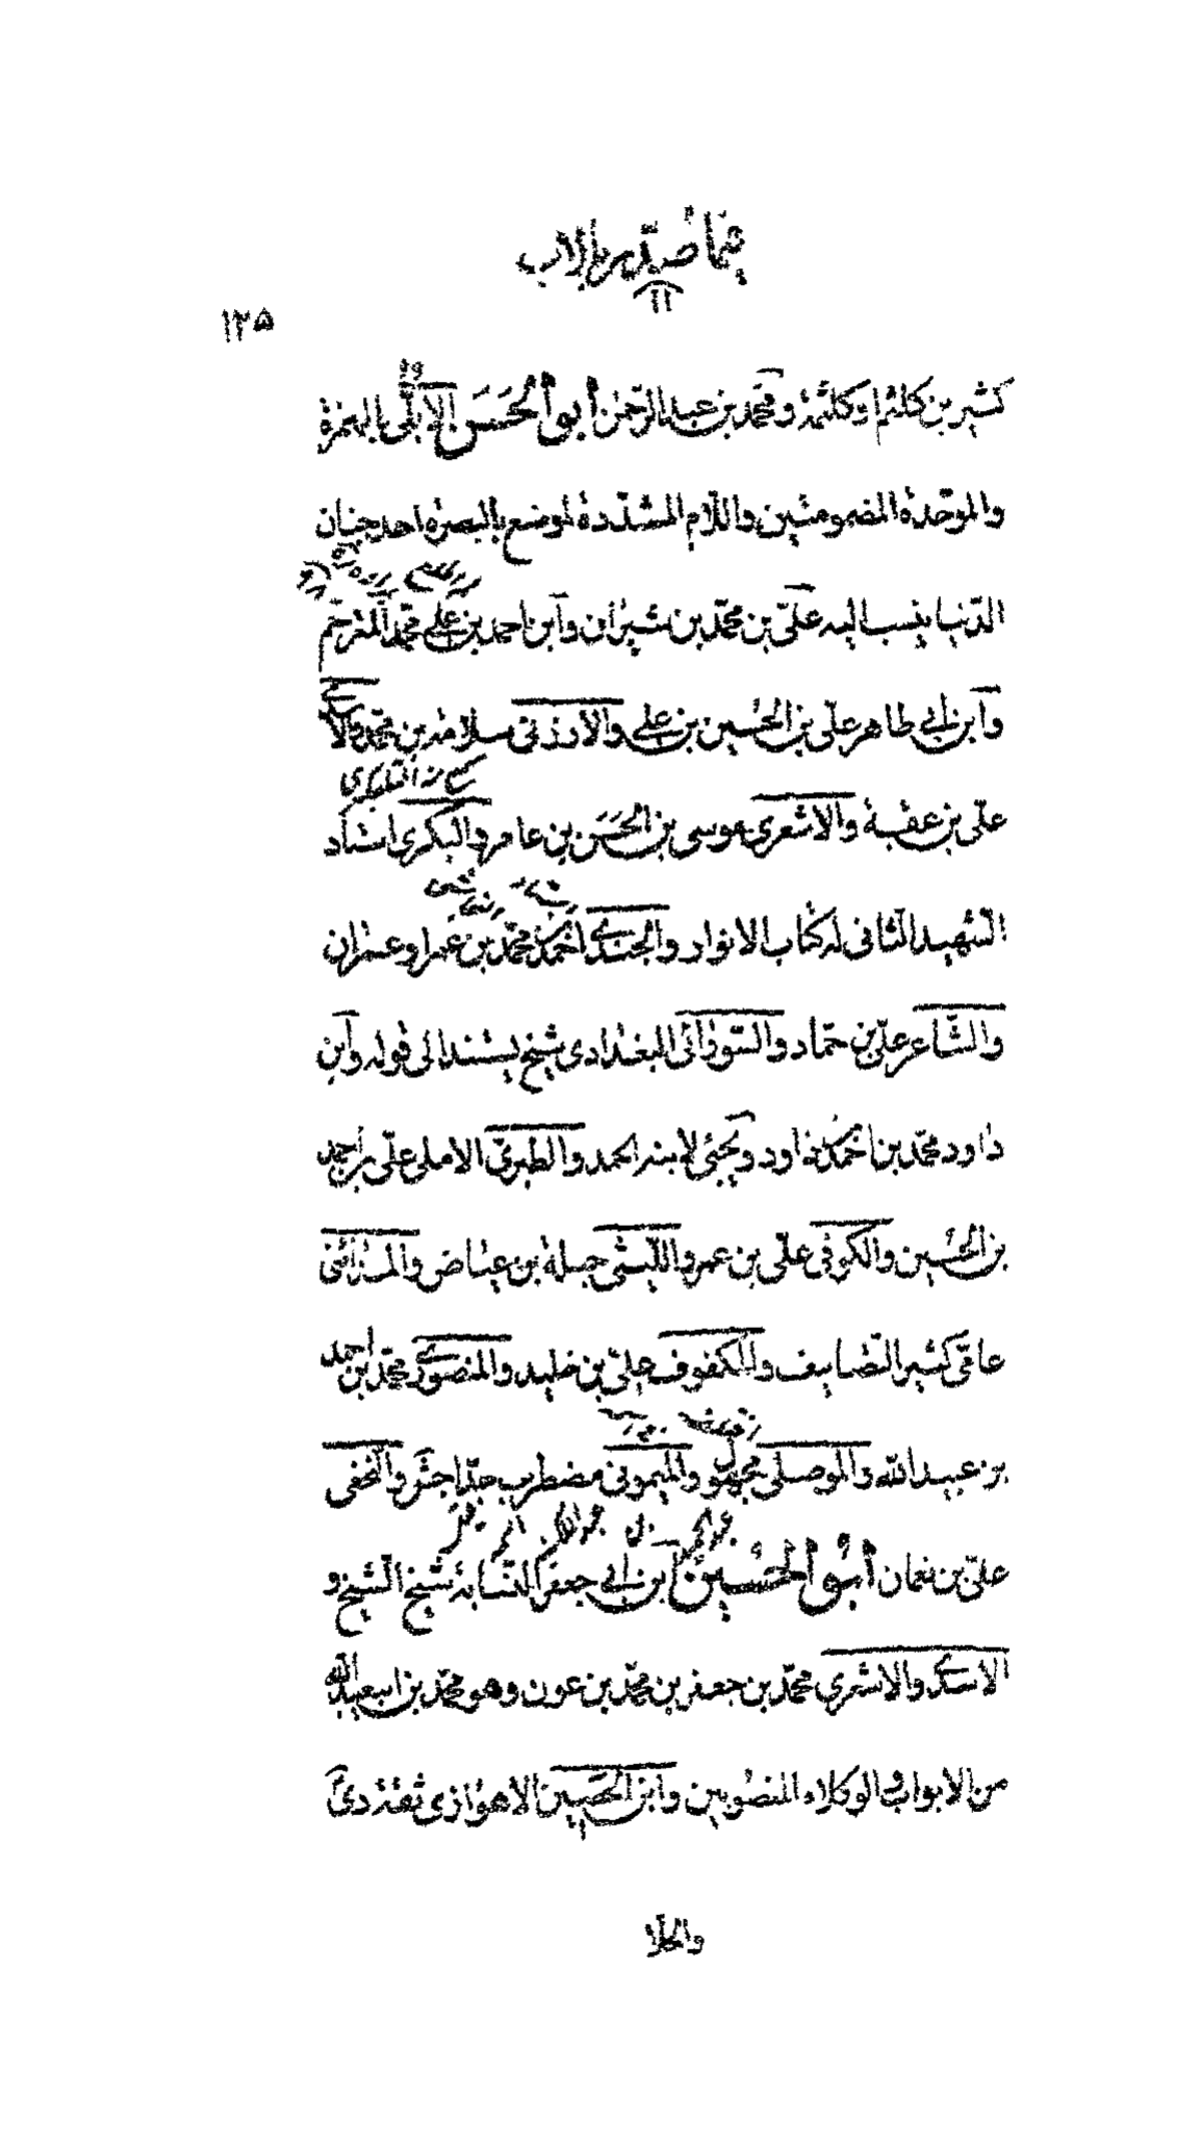 فيما صدر بالاب
۱۲۵
كثير بن كلثم او كلثمة ومحمد بن عبد الرحمن أبو الحَسَن الأبلّي بالهمزة
والموحّدة المضمومتين واللّام المشدّدة لموضع بالبصرة احد جنان
الدّنيا ينسب اليه علّى بن محمّد بن شيران وآبن احمد بن علي محمّد المترجم
وآبن ابي طاهر علّى بن الحُسين بن علي والارزنى سلامة بن محمّد والا
علّى بن عقبة والاشعري موسى بن الحَسَن بن عامر والبكرى استاد
الشّهيد الثّانى له كتاب الانوار والجندي احمد بن محمّد بن عمر او عمران
والشّاعر علّى بن حمّاد والسّورائى البغدادى شيخ يستند الى قوله وآبن
داود محمّد بن احمد بن داود ويجئ لابنه احمد والطبرىّ الاملى علّى بن احمد
بن الحُسين والكوفى علّى بن عمر والليثى جبلة بن عياض والمدائنى
عامّى كثير التّصانيف والمكفوف علّى بن خليد والمنصوري محمّد بن احمد
بن عبيد الله والموصلى مجهول والميمونى مضطرب جدّا جشّ والنخفى
علّى بن نعمان أبُو الحُسين آبن ابى جعفر النسّابة شيخ الشّيخ و
الاسدي والاشعري محمّد بن جعفر بن محمّد بن عون وهو محمّد بن ابيعبد الله
من الابواب والوكلاء المنصوبين وآبن الحُصين الاهوازى ثقة دىّ
والحلا